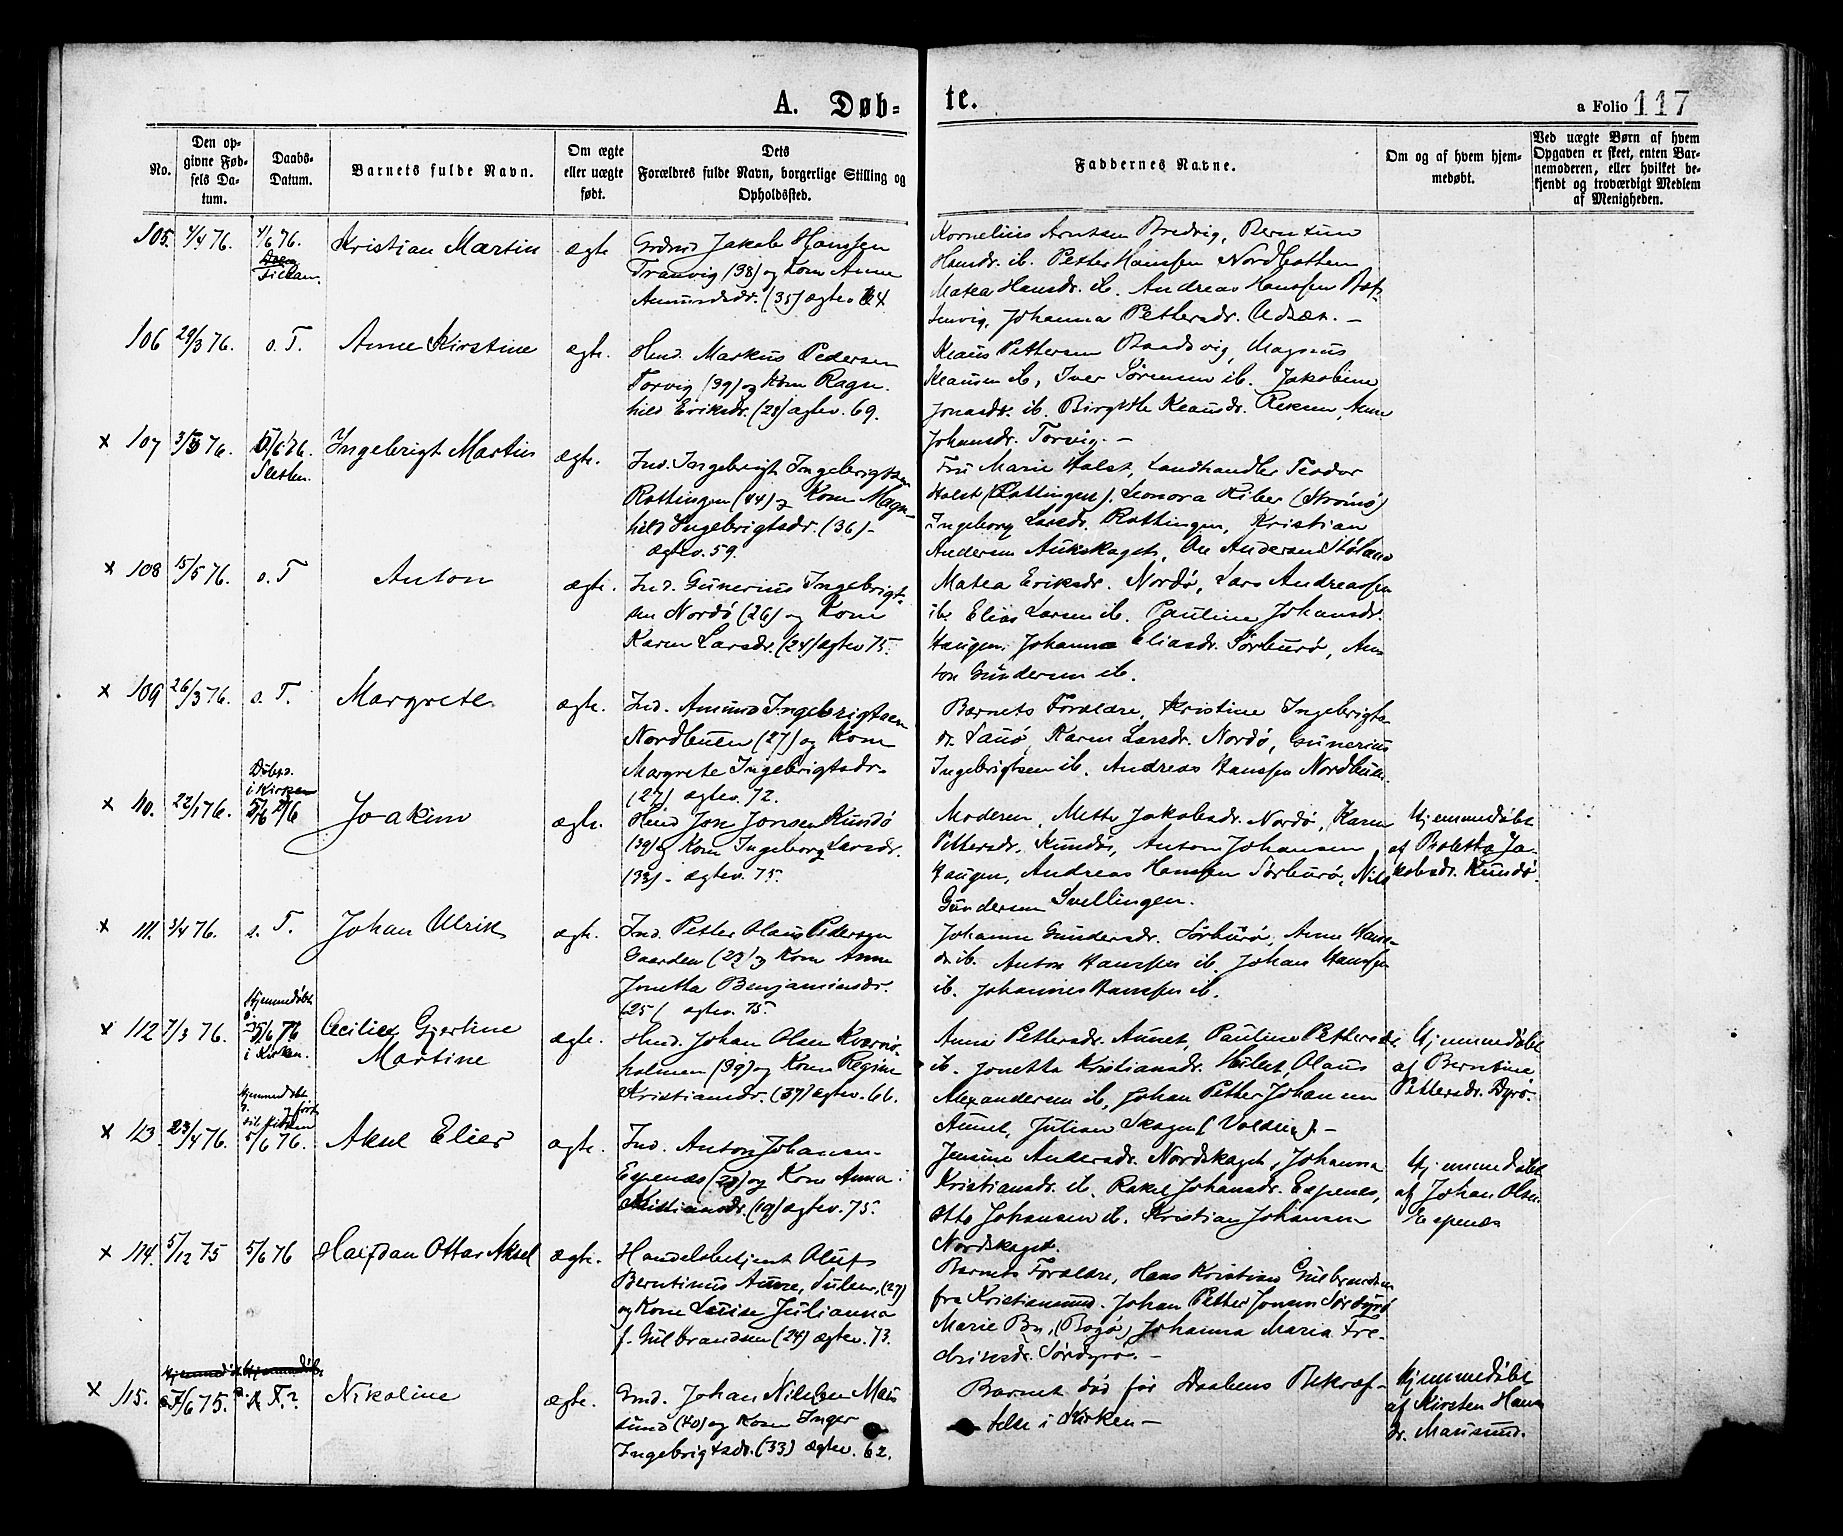 A. Døb-
te.
a Folio 117
No.
Den op-
givne Fød-
sels Da-
tum.
Daabs-
Datum.
Barnets fulde Navn.
Om ægte
eller uægte
født.
Dets
Forældres fulde Navn, borgerlige Stilling og
Opholdssted.
Faddernes Navne.
Om og af hvem hjem-
medøbt.
Ved uægte Børn af hvem
Opgaven er skeet, enten Bar-
nemoderen, eller hvilket be-
kjendt og troværdigt Medlem
af Menigheden.
105. 4/6 76. Kristian Martin ægte
Jakob Hanssen
(38) og Kone Anne
Amundsdr. (35) ægtev.
Kornelius Arntsen Bredvig, Berntine
Hansdr. ib. Petter Hanssen Nordbotten
Matea Hansdr. ib. Andreas Hanssen
Johanna Pettersdr. Udsæt. -
106 29/3 76. s. T. Anne Kirstine ægte.
Hmd. Markus Pedersen
Torvig (39) og Kone Ragn-
hild Eriksdr. (28) ægtev. 69.
Klaus Pettersen Magnus
Klausen ib, Iver Sørensen ib. Jakobine
Jonasdr. ib. Birgitte Klausdr. Anne
Johansdr. Torvig. -
x 107 76. 5/6 76. Ingebrigt Martin ægte.
Sletten.
Ind. Ingebrigt Ingebrigtsen
Rottingen (44) og Kone Magn-
hild Ingebrigtsdr. (36) -
ægtev. 59.
Fru Marie Holst, Landhandler Teodor
Holst (Rottingen). Leonora Kiber (Strømø)
Ingeborg Larsdr. Rottingen, Kristian
Andersen Aukskaget, Ole Andersen
x 108 15/5 76. s. T Anton ægte.
Ind. Gunerius Ingebrigt-
sen Nordø (26) og Kone
Karen Larsdr. (24) ægtev 75.
Matea Eriksdr. Nordø, Lars Andreassen
ib. Elias Larsen ib. Pauline Johansdr.
Haugen. Johanna Eliasdr. Sørburø, An-
ton Gundersen ib.
x 109 26/3 76. s. T. Margrete ægte.
Ind. Amund Ingebrigtsen
Nordbuen (27) og Kone
Margrete Ingebrigtsdr.
(27) ægtev. 72.
Barnets Forældre, Kristine Ingebrigts-
dr. Karen Larsdr. Nordø, Gunerius
Ingebrigtsen ib. Andreas Hanssen Nordbuen.
i Kirken
x 110. 22/1 76. Joakim ægte.
Hmd Jon Jonsen Kunsø
(39) og Kone Ingeborg Larsdr.
(33) - ægtev. 75.
Moderen, Mette Jakobsdr. Nordø, Karen
Pettersdr. Kunsø, Anton Johansen
Haugen, Andreas Hanssen Sørburø, Nils
Gundersen Svellingen.
Hjemmedøbt
af Ja-
kobsdr. Kunsø.
x 111. 3/4 76. s. T. Johan Ulrik ægte.
Ind. Petter Olaus Pedersen
Gaarden (29) og Kone Anne
Jonetta Benjaminsdr.
(25) ægtev. 75.
Johanna Gundersdr. Sørburø, Anne Hans-
dr. ib. Anton Hanssen ib. Johan Hanssen
ib. Johannes Hanssen ib.
Hjemmedøbt
x 112 7/3 76. 5/6 76 Cecilie Gjertine
i Kirken. Martine ægte.
Hmd. Johan Olsen Kværnø-
holmen (39) og Kone Regine
Kristiansdr. (37) ægtev. 66.
Anne Pettersdr. Aunet, Pauline Pettersdr
ib. Jonetta Kristiansdr. Olaus
Alexandersen ib, Johan Petter Johansen
Aunet, Julian Skagen
Hjemmedøbt
af Berntine
Pettersdr. Dyrø.
Hjemmedøbt
til Kirken
x 113. 23/4 76. 5/6 76. Aksel Elier ægte.
Ind. Anton Johansen
Espenæs og Kone Anna
Kristiansdr. (19) ægtev. 75.
Jensine Andersdr. Nordskaget, Johanna
Kristiansdr. ib. Rakel Johansdr. Espenes,
Otto Johansen ib. Kristian Johansen
Nordskaget.
Hjemmedøbt
af Johan Olsen
Espenæs
x 114. 5/12 75 5/6 76 Halfdan Ottar Aksel ægte.
Handelsbetjent Oluf
Berntinus Aune, Sulen, (27)
og Kone Louise Julianna
f. Gulbrandsen (24) ægtev. 73.
Barnets Forældre, Hans Kristian Gulbrandsen
fra Kristiansund. Johan Petter Jonsen Sørdyrø
Marie Johanna Maria Fre-
driksdr. Sørdyrø. -
x 115. 7/6 75. Nikoline ægte.
Gmd. Johan Nilssen Mau-
sund (40) og Kone Inger
Ingebrigtsdr. (33) ægtev. 62.
Barnet død før Daabens Bekræf-
telse i Kirken -
Hjemmedøbt
af Kirsten Hans-
dr. Mausund.